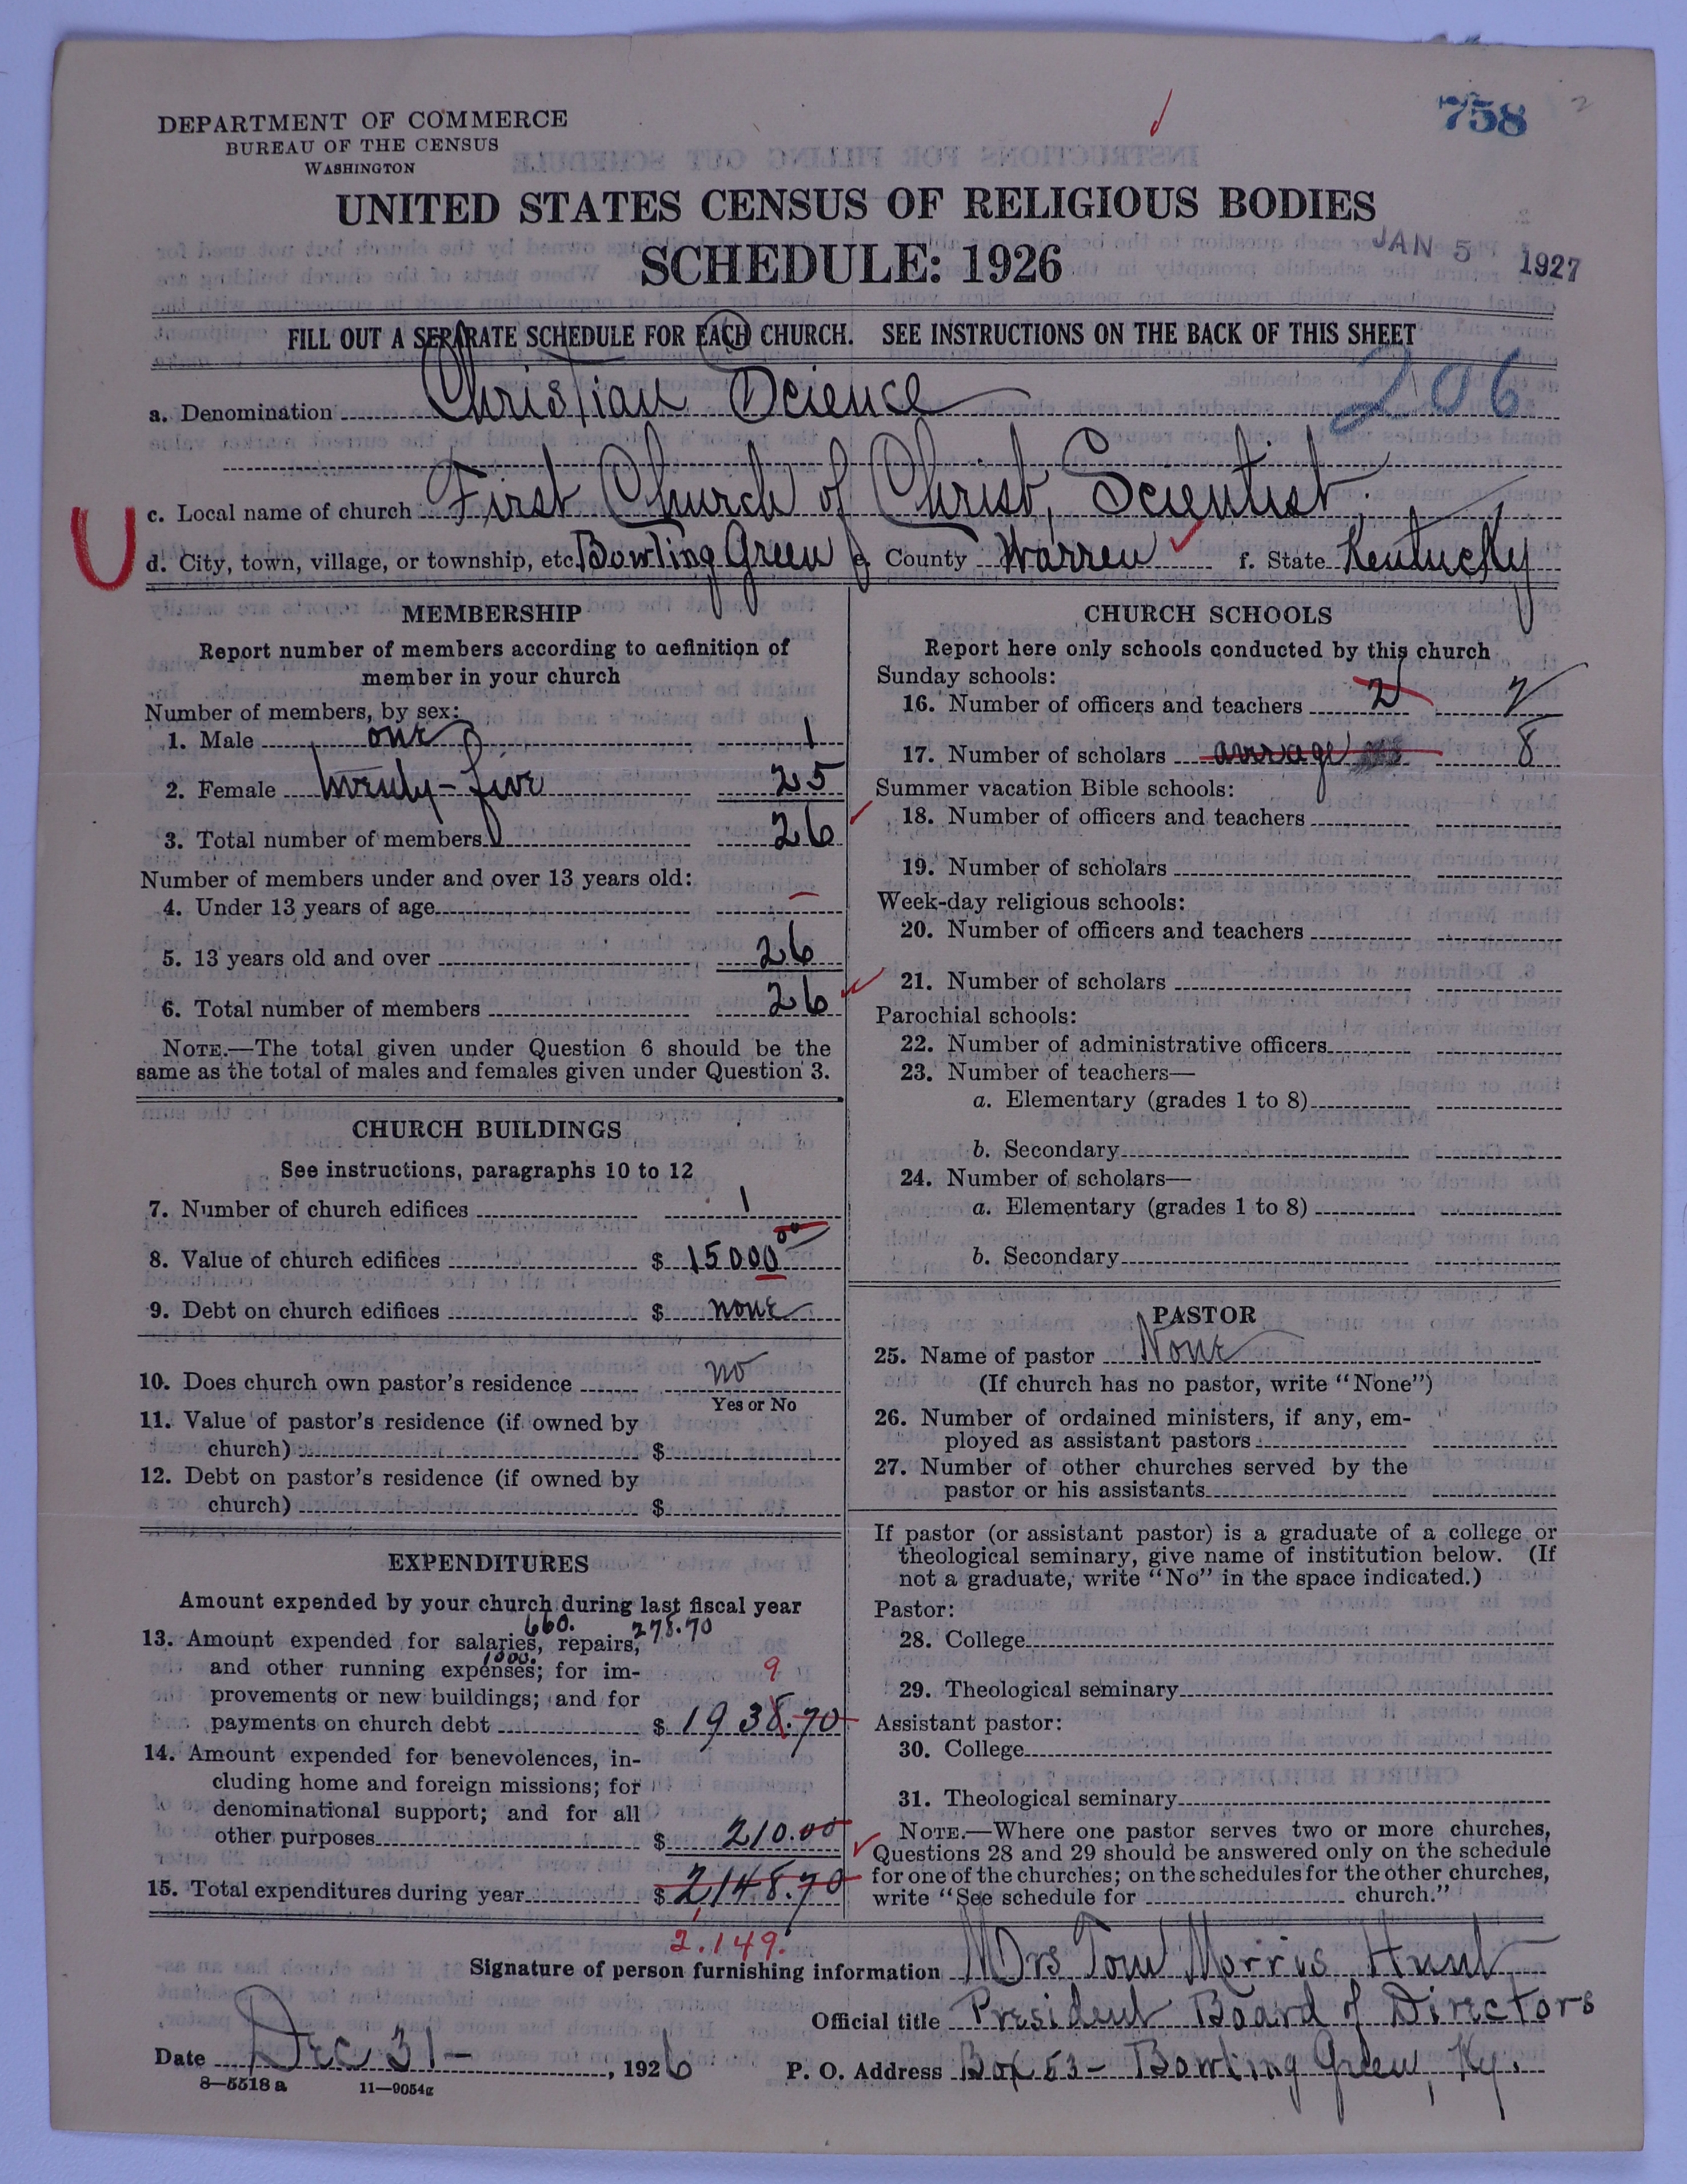 758
DEPARTMENT OF COMMERCE
BUREAU OF THE CENSUS
WASHINGTON
UNITED STATES CENSUS OF RELIGIOUS BODIES
SCHEDULE: 1926
JAN 5 1927
FILL OUT A SEPARATE SCHEDULE FOR EACH CHURCH. SEE INSTRUCTIONS ON THE BACK OF THIS SHEET
a. Denomination Christian Science
206
c. Local name of church First Church of Christ, Scientist.
U
d. City, town, village, or township, etc. Bowling Green e. County Warren f. State Kentucky
MEMBERSHIP
Report number of members according to definition of
member in your church
Number of members, by sex:
1. Male one 1
2. Female twenty-five 25
3. Total number of members 26
Number of members under and over 13 years old:
4. Under 13 years of age –
5. 13 years old and over 26
6. Total number of members 26
NOTE.—The total given under Question 6 should be the
same as the total of males and females given under Question 3.
CHURCH BUILDINGS
See instructions, paragraphs 10 to 12
7. Number of church edifices 1
8. Value of church edifices $ 15000 00
9. Debt on church edifices $ none
10. Does church own pastor's residence no
Yes or No
11. Value of pastor's residence (if owned by
church) $
12. Debt on pastor's residence (if owned by
church) $
EXPENDITURES
Amount expended by your church during last fiscal year
660. 278.70
13. Amount expended for salaries, repairs,
1000.
and other running expenses; for im-
9
provements or new buildings; and for
payments on church debt $ 1938.70
14. Amount expended for benevolences, in-
cluding home and foreign missions; for
denominational support; and for all
other purposes $ 210.00
15. Total expenditures during year $ 2,148.70
2.149.
CHURCH SCHOOLS
Report here only schools conducted by this church
Sunday schools:
16. Number of officers and teachers 2 2
17. Number of scholars average 8
Summer vacation Bible schools:
18. Number of officers and teachers
19. Number of scholars
Week-day religious schools:
20. Number of officers and teachers
21. Number of scholars
Parochial schools:
22. Number of administrative officers
23. Number of teachers—
a. Elementary (grades 1 to 8)
b. Secondary
24. Number of scholars—
a. Elementary (grades 1 to 8)
b. Secondary
PASTOR
25. Name of pastor None
(If church has no pastor, write "None")
26. Number of ordained ministers, if any, em-
ployed as assistant pastors
27. Number of other churches served by the
pastor or his assistants
If pastor (or assistant pastor) is a graduate of a college or
theological seminary, give name of institution below. (If
not a graduate, write "No" in the space indicated.)
Pastor:
28. College
29. Theological seminary
Assistant pastor:
30. College
31. Theological seminary
NOTE.—Where one pastor serves two or more churches,
Questions 28 and 29 should be answered only on the schedule
for one of the churches; on the schedules for the other churches,
write "See schedule for church."
Signature of person furnishing information Mrs Tom Morris Hunt
Official title President Board of Directors
Date Dec 31– , 1926 P. O. Address Box 53– Bowling Green, Ky.
8—5518 a 11—9054g